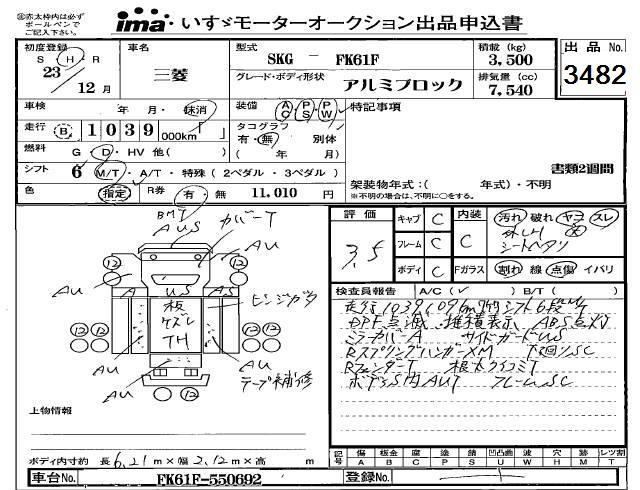 ㊟赤太枠内は必ずボールペンでご記入下さい。
ima いすゞモーターオークション出品申込書
初度登録 車名 型式 積載 (kg) 出品 No.
S H R 三菱 SKG - FK61F 3,500
23 グレード・ボディ形状 排気量 (cc) 3482
12 月 アルミブロック 7,540
車検 年 月・抹消 装備 AC PS PW 特記事項
走行 B 1039 000km タコグラフ
有・無 別体
燃料 G・D・HV 他( ) ( 年 月)
シフト 6 M/T・A/T・特殊(2ペダル・3ペダル) 書類2週間
色 指定 R券 有・無 11,010 円 架装物年式:( 年式)・不明
※不明の場合は、不明に○をする。
BMT
AUS カバーT
評価 キャブ C 内装 汚れ 破れ ヤコ スレ
3.5 フレーム C C
シートヘタリ
ボディ C Fガラス 割れ 線 点傷 イバリ
12 AU AU 12
A US AS
板
ケズレ
TH
ヒンジガタ
12 12
AU AU
AU テープ補修
検査員報告 A/C( ✓ ) B/T( )
走行1039,096km シフト6段MT
DPF点滅 推積表示 ABS点灯
ミラーカバーA サイドガードUS
RスプリングハンガーXM 下回りSC
RフェンダーT 根太クイコミT
ボディS内AUT フレームSC
上物情報
ボディ内寸約 長 6.21 m × 幅 2.12 m × 高 m
記号 傷 A 板金 B 腐 C 塗 P 錆 S 凹凸曲 U 波 W 穴 H 跡 M レツ割 T
車台No. FK61F-550692 登録No.